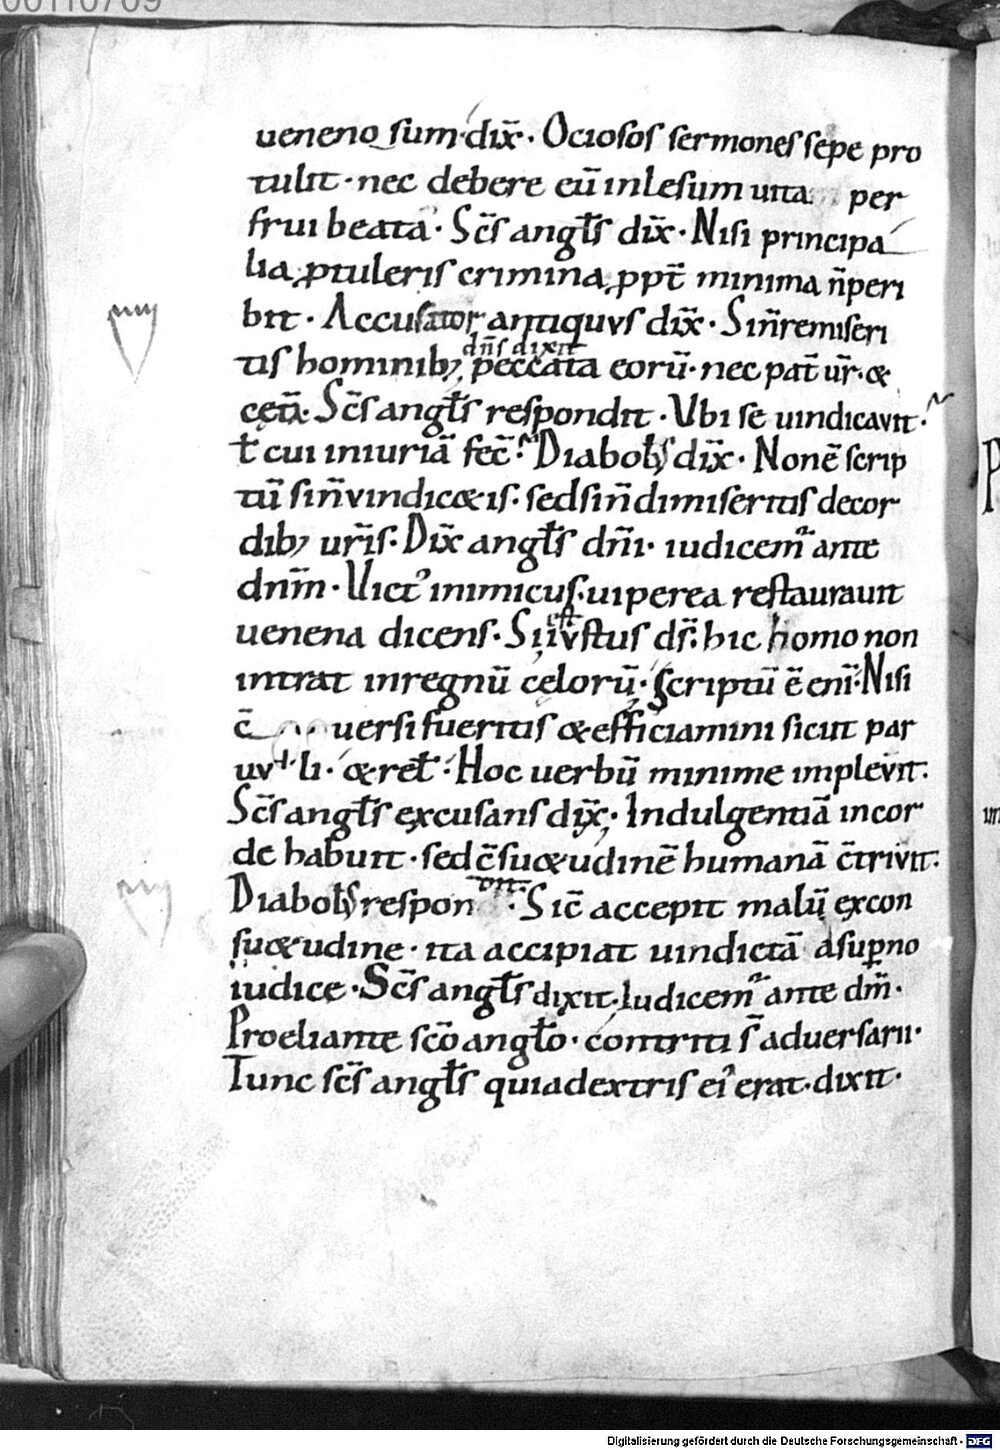 00110709
ueneno sum dix̄ · Ociosos sermones sepe pro
tulit · nec debere eū inlesum uita per
frui beata · Sc̄s angl̄s dix̄ · Nisi principa
lia ꝓtulerit crimina, ꝓpt̄ minima n̄ peri
bit · Accusator antiquus dix̄ · Si n̄ remiseri
dn̄s dixit
tis hominibꝫ peccata eorū · nec pat̄ ur̄ · &
cęta · Sc̄s angl̄s respondit · Ubi se uindicauit ·
ł cui iniuriā fec̄ · Diabol᷒ dix̄ · Non ē scrip
tū si n̄ uindic&is · sed si n̄ dimiseritis de cor
dibꝫ ur̄is · Dix̄ angl̄s dn̄i · iudicem᷑ ante
dn̄m · Uict᷒ inimicus · uiperea restaurauit
est
uenena dicens · Si iustus ds̄ · hic homo non
intrat in regnū cęlorū · Scriptū ē eni᷑ · Nisi
c̄uersi fueritis & efficiamini sicut par
uuli · & rel̄ · Hoc uerbū minime impleuit ·
Sc̄s angl̄s excusans dix̄ · Indulgentiā in cor
de habuit · sed c̄su&udinē humanā c̄triuit ·
dit
Diabol᷒ respon · Sic̄ accepit malū ex con
su&udine · ita accipiat uindictā a suꝑno
iudice · Sc̄s angl̄s dixit · Iudicem᷑ ante dm̄ ·
Proeliante sc̄o angl̄o · contriti s̄ aduersarii ·
Tunc sc̄s angl̄s qui a dextris ei᷒ erat · dixit ·
Digitalisierung gefördert durch die Deutsche Forschungsgemeinschaft - DFG